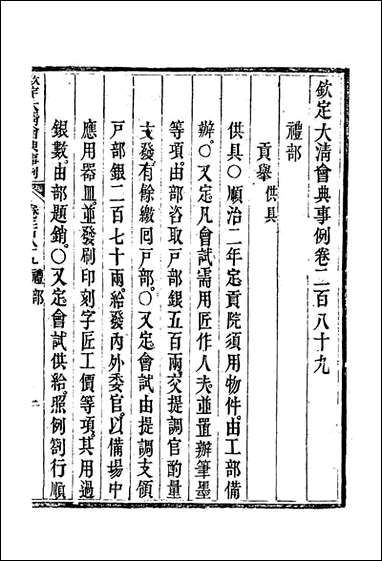 欽定大清會典事例卷二百八十九
禮部
貢舉 供具
供具○順治二年定貢院須用物件由工部備
辦○又定凡會試需用匠作人夫並置辦筆墨
等項由部咨取戶部銀五百兩交提調官酌量
支發有餘繳囘戶部○又定會試由提調支領
戶部銀二百七十兩給發內外委官以備場中
應用器皿並發刷印刻字匠工價等項其用過
銀數由部題銷○又定會試供給照例劄行順
欽定大淸會典事例 卷二百八十九 禮部 一